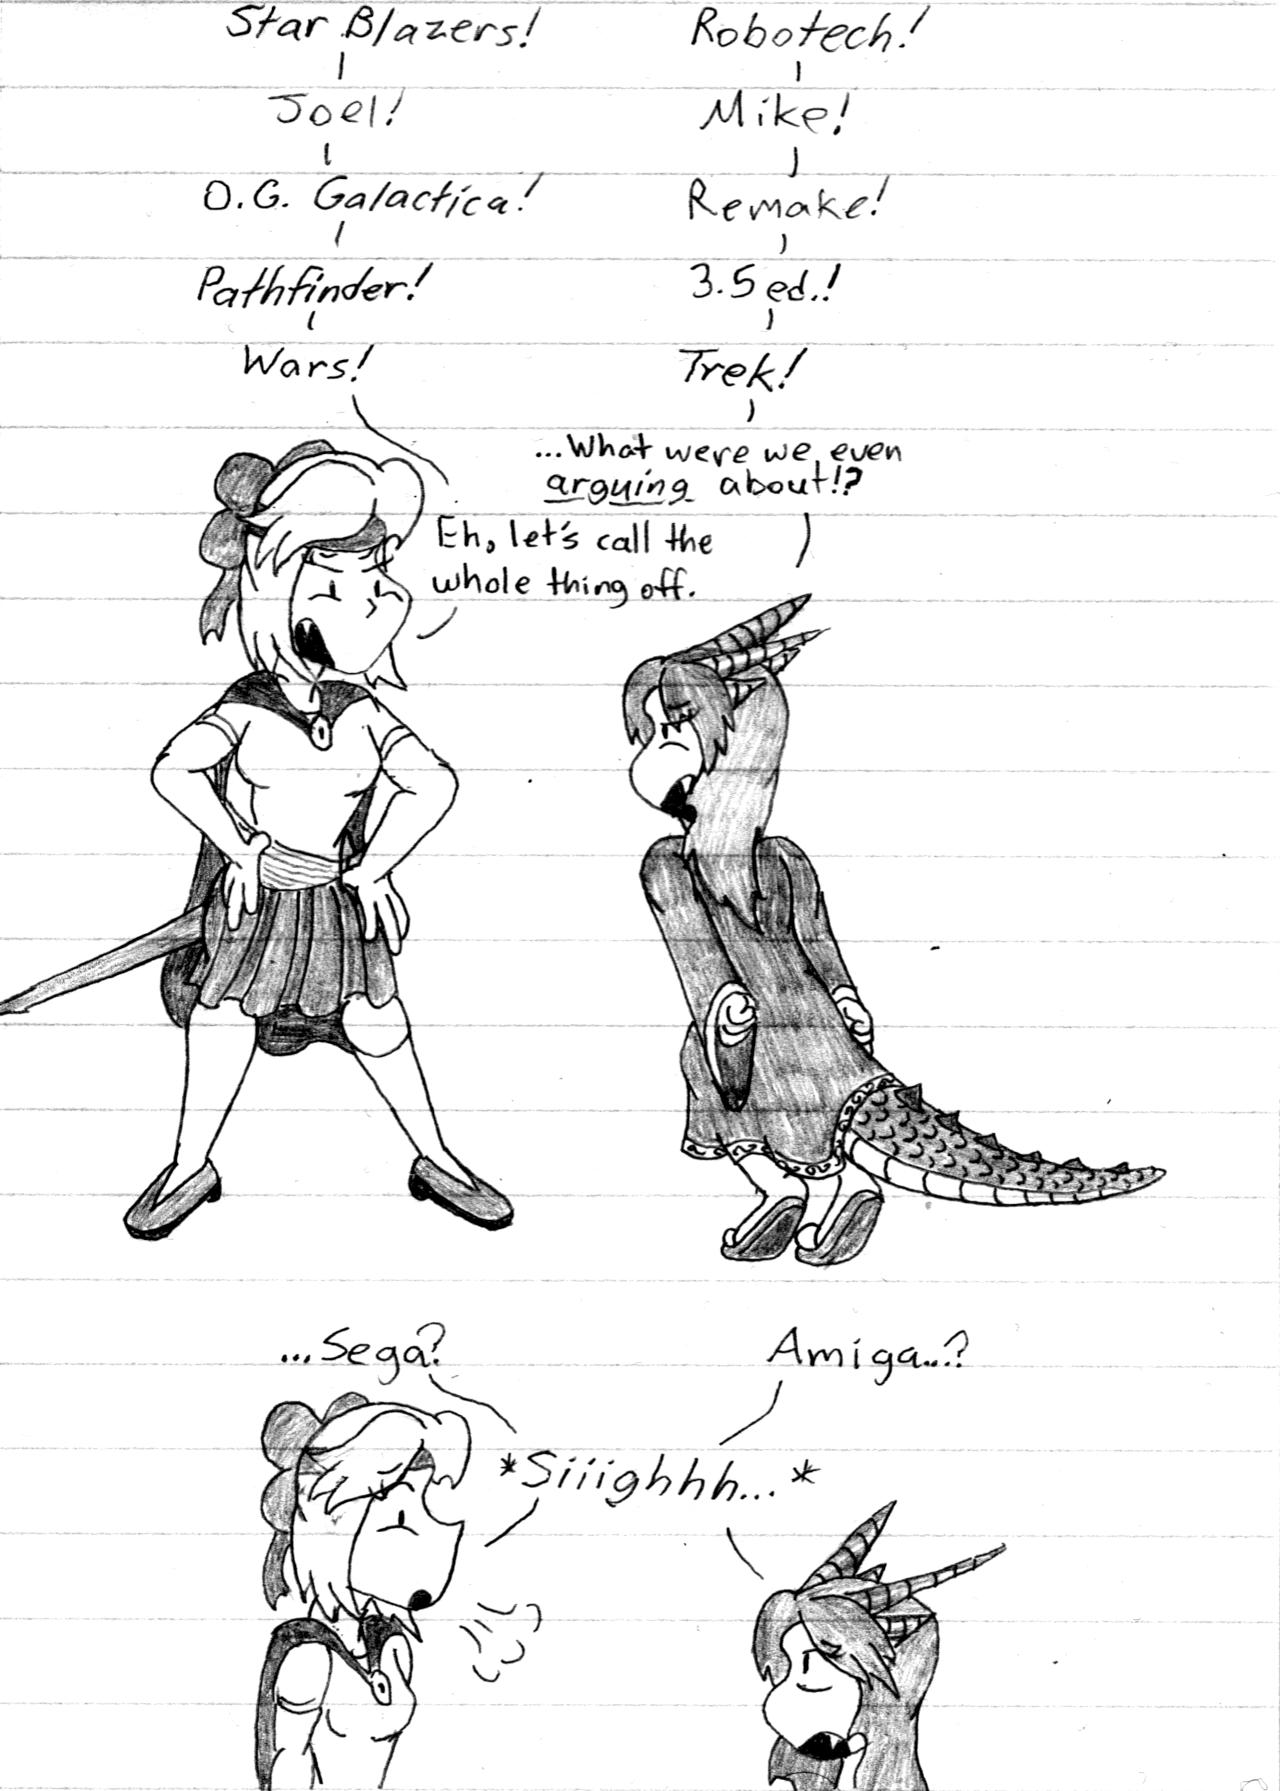 Star Blazers!
Robotech!
Joel!
Mike!
O.G. Galactica!
Remake!
Pathfinder!
3.5 ed.!
Wars!
Trek!
...What were we even
arguing about!?
Eh, let's call the
whole thing off.
...Sega?
Amiga..?
*Siiighhh...*